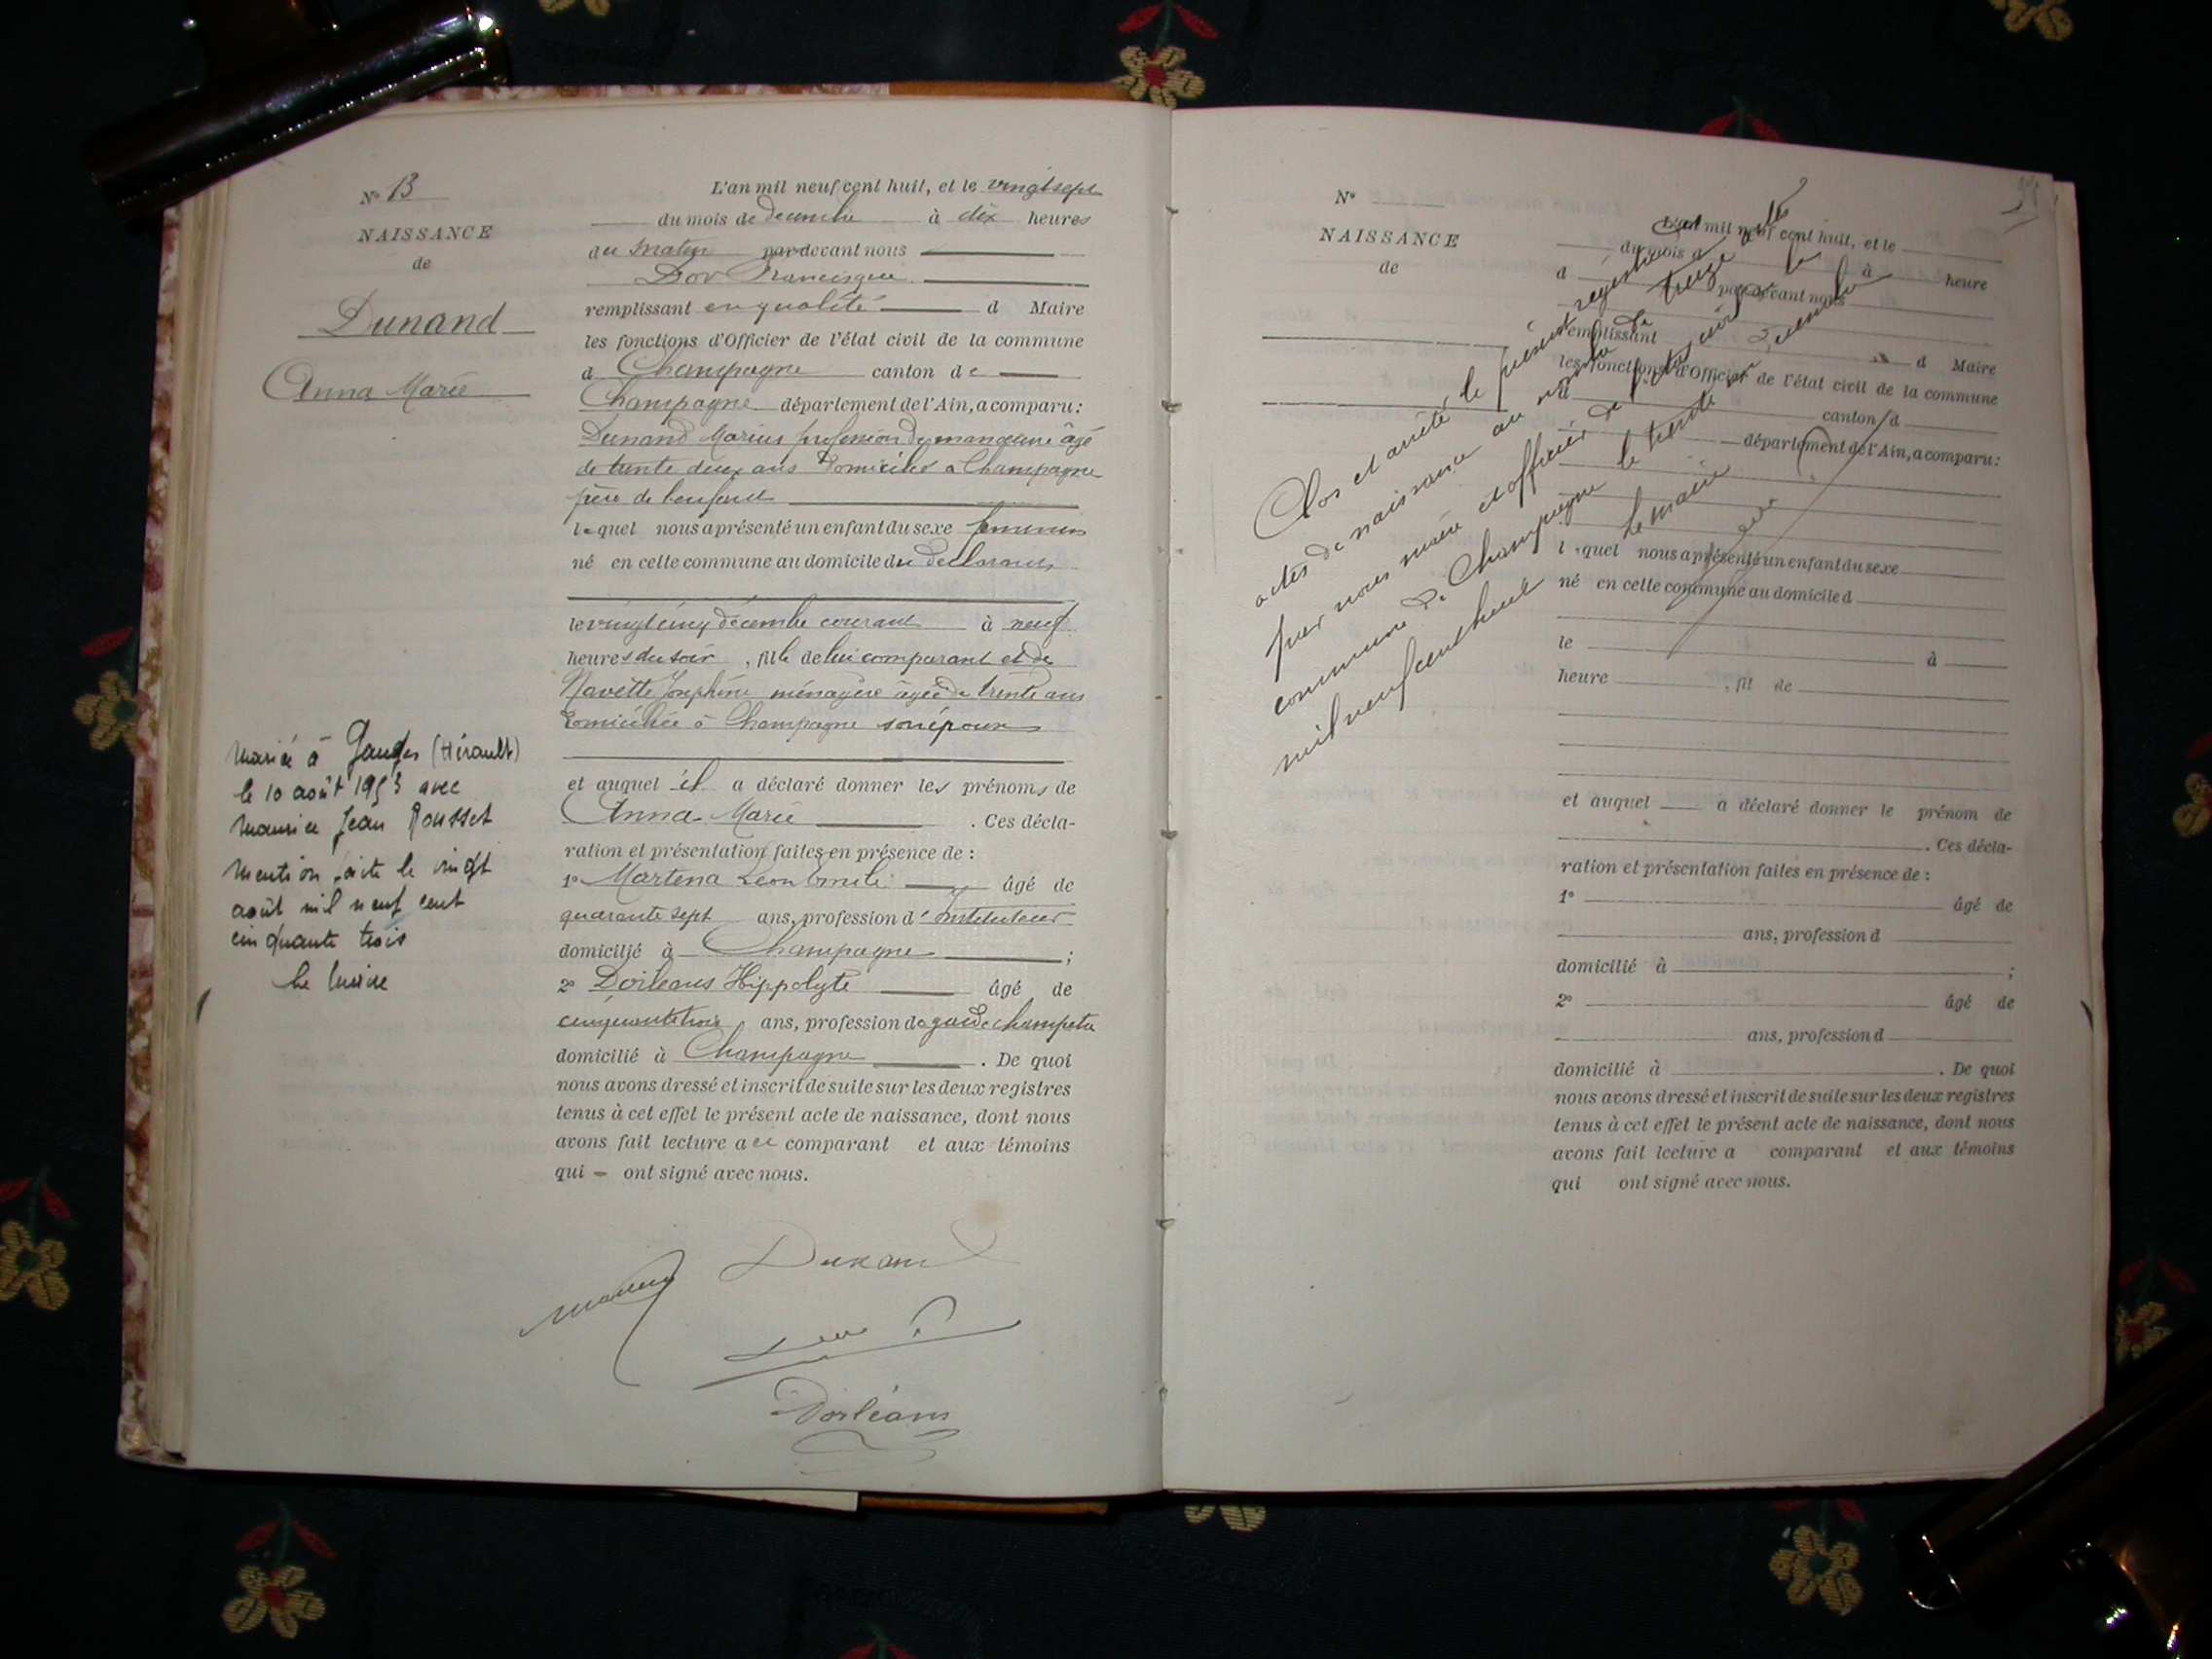 N° 13
NAISSANCE
de
Dunand
Anna Marie
L'an mil neuf cent huit, et le vingt sept
du mois de decembre à dix heures
du matin pardevant nous
Dor Francisque
remplissant en qualité d Maire
les fonctions d'Officier de l'état civil de la commune
d Champagne canton de
Champagne département de l'Ain, a comparu:
Dunand Marius profession de manœuvre âgé
de trente deux ans domicilié à Champagne
père de l'enfant
lequel nous a présenté un enfant du sexe feminin
né en cette commune au domicile du declarant,
le vingt cinq décembre courant à neuf
heures du soir, fille de lui comparant et de
Navette Joséphine ménagère âgée de trente ans
domiciliée à Champagne son épouse
et auquel il a déclaré donner les prénoms de
Anna Marie. Ces décla-
ration et présentation faites en présence de :
1° Martena Léon Emile âgé de
quarante sept ans, profession d'instituteur
domicilié à Champagne ;
2° Dorleans Hippolyte âgé de
cinquante trois ans, profession de garde champetre
domicilié à Champagne. De quoi
nous avons dressé et inscrit de suite sur les deux registres
tenus à cet effet le présent acte de naissance, dont nous
avons fait lecture au comparant et aux témoins
qui ont signé avec nous.
Dunand
Dorléans
Mariée à Ganges (Hérault)
le 10 août 1953 avec
Maurice Jean Rousset
Mention faite le vingt
août mil neuf cent
cinquante trois
Le Maire
N°
NAISSANCE
de
L'an mil neuf cent huit, et le
du mois d à heure
d pardevant nous
remplissant d Maire
les fonctions d'Officier de l'état civil de la commune
d canton d
département de l'Ain, a comparu:
l quel nous a présenté un enfant du sexe
né en cette commune au domicile d
le à
heure , fil de
et auquel a déclaré donner le prénom de
. Ces décla-
ration et présentation faites en présence de :
1° âgé de
ans, profession d
domicilié à ;
2° âgé de
ans, profession d
domicilié à . De quoi
nous avons dressé et inscrit de suite sur les deux registres
tenus à cet effet le présent acte de naissance, dont nous
avons fait lecture a comparant et aux témoins
qui ont signé avec nous.
Clos et arrêté le présent registre des
actes de naissance au nombre de treize
par nous maire et officier de l'état civil de la
commune de Champagne le trente un Décembre
mil neuf cent huit
Le maire